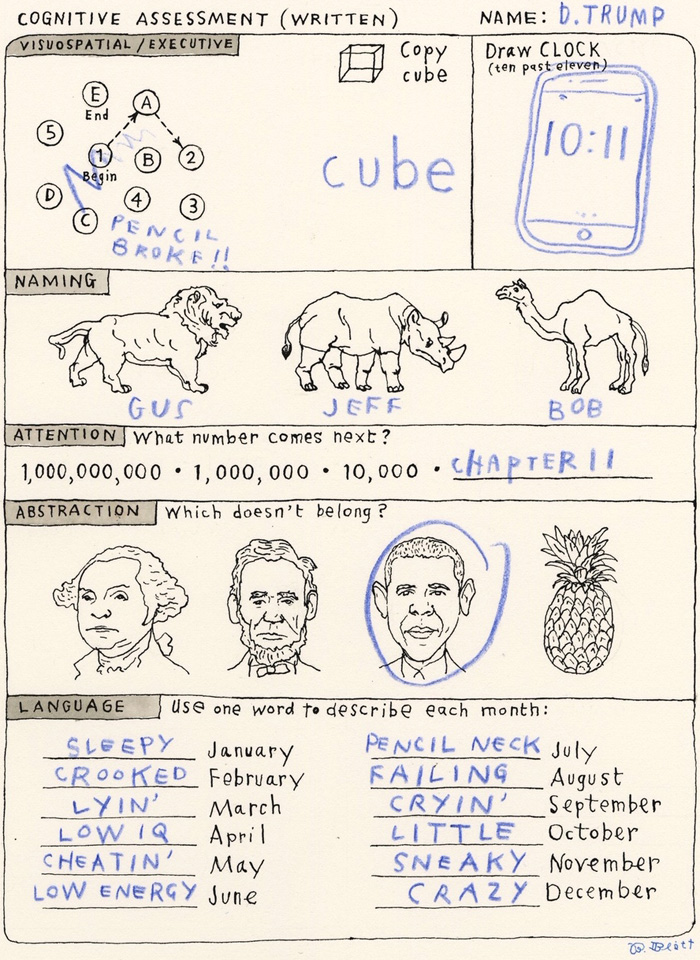 COGNITIVE ASSESSMENT (WRITTEN) NAME: D. TRUMP
VISUOSPATIAL / EXECUTIVE
Copy
cube
Draw CLOCK
(ten past eleven)
E
End
A
5
1
Begin
B
2
D
C
4
3
PENCIL
BROKE!!
cube
10:11
NAMING
GUS JEFF BOB
ATTENTION What number comes next?
1,000,000,000 • 1,000,000 • 10,000 • CHAPTER 11
ABSTRACTION Which doesn't belong?
LANGUAGE Use one word to describe each month:
SLEEPY January
CROOKED February
LYIN' March
LOW IQ April
CHEATIN' May
LOW ENERGY June
PENCIL NECK July
FAILING August
CRYIN' September
LITTLE October
SNEAKY November
CRAZY December